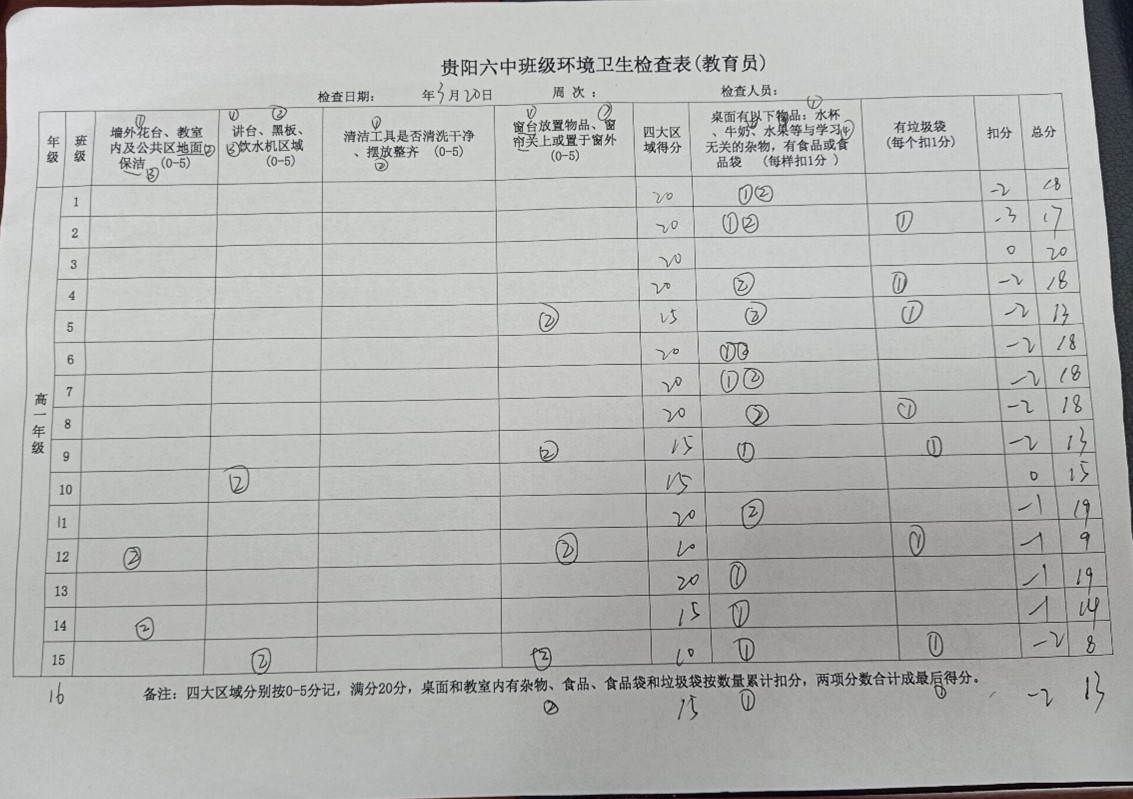 贵阳六中班级环境卫生检查表(教育员)
检查日期： 年3月20日 周 次： 检查人员：
年级 班级 墙外花台、教室内及公共区地面保洁 (0-5) ① ② ③ 讲台、黑板、饮水机区域 (0-5) ① ② ③ 清洁工具是否清洗干净、摆放整齐 (0-5) ① ② 窗台放置物品、窗帘关上或置于窗外 (0-5) ① ② 四大区域得分 桌面有以下物品：水杯、牛奶、水果等与学习无关的杂物，有食品或食品袋 (每样扣1分) ① 有垃圾袋 (每个扣1分) 扣分 总分
高一年级
1 20 ①② -2 18
2 20 ①② ① -3 17
3 20 0 20
4 20 ② ① -2 18
5 ② 15 ② ① -2 13
6 20 ①② -2 18
7 20 ①② -2 18
8 20 ② ① -2 18
9 ② 15 ① ① -2 13
10 ② 15 0 15
11 20 ② -1 19
12 ② ② 10 ① -1 9
13 20 ① -1 19
14 ② 15 ① -1 14
15 ② ② 10 ① ① -2 8
备注：四大区域分别按0-5分记，满分20分，桌面和教室内有杂物、食品、食品袋和垃圾袋按数量累计扣分，两项分数合计成最后得分。
16 ② 15 ① ① -2 13